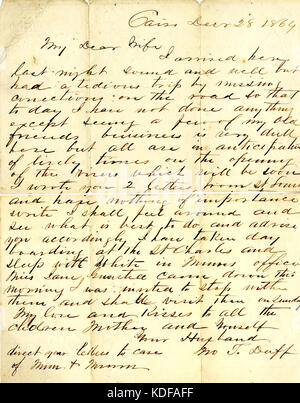 Cairo Decr 28 1864
My Dear Wife
I arrived here
last night sound and well but
had a tedious trip by missing
connections on the road so that
to day I have not done anything
except seeing a few of my old
friends business is very dull
here but all are in anticipation
of lively times on the opening
of the river which will be soon
I wrote you 2 letters from St Louis
and have nothing of importance
write I shall feel around and
see what is best to do and advise
you accordingly I have taken day
boarding at the St Charles and
sleep with White in Munns office
Miss came down this
morning I was invited to stop with
them and shall visit them on Sunday
My love and Kisses to all the
children Mother and yourself
Your Husband
Jno T. Duff
direct your letters to care
of Munn &
alamy
Image ID: KDFAFF
www.alamy.com